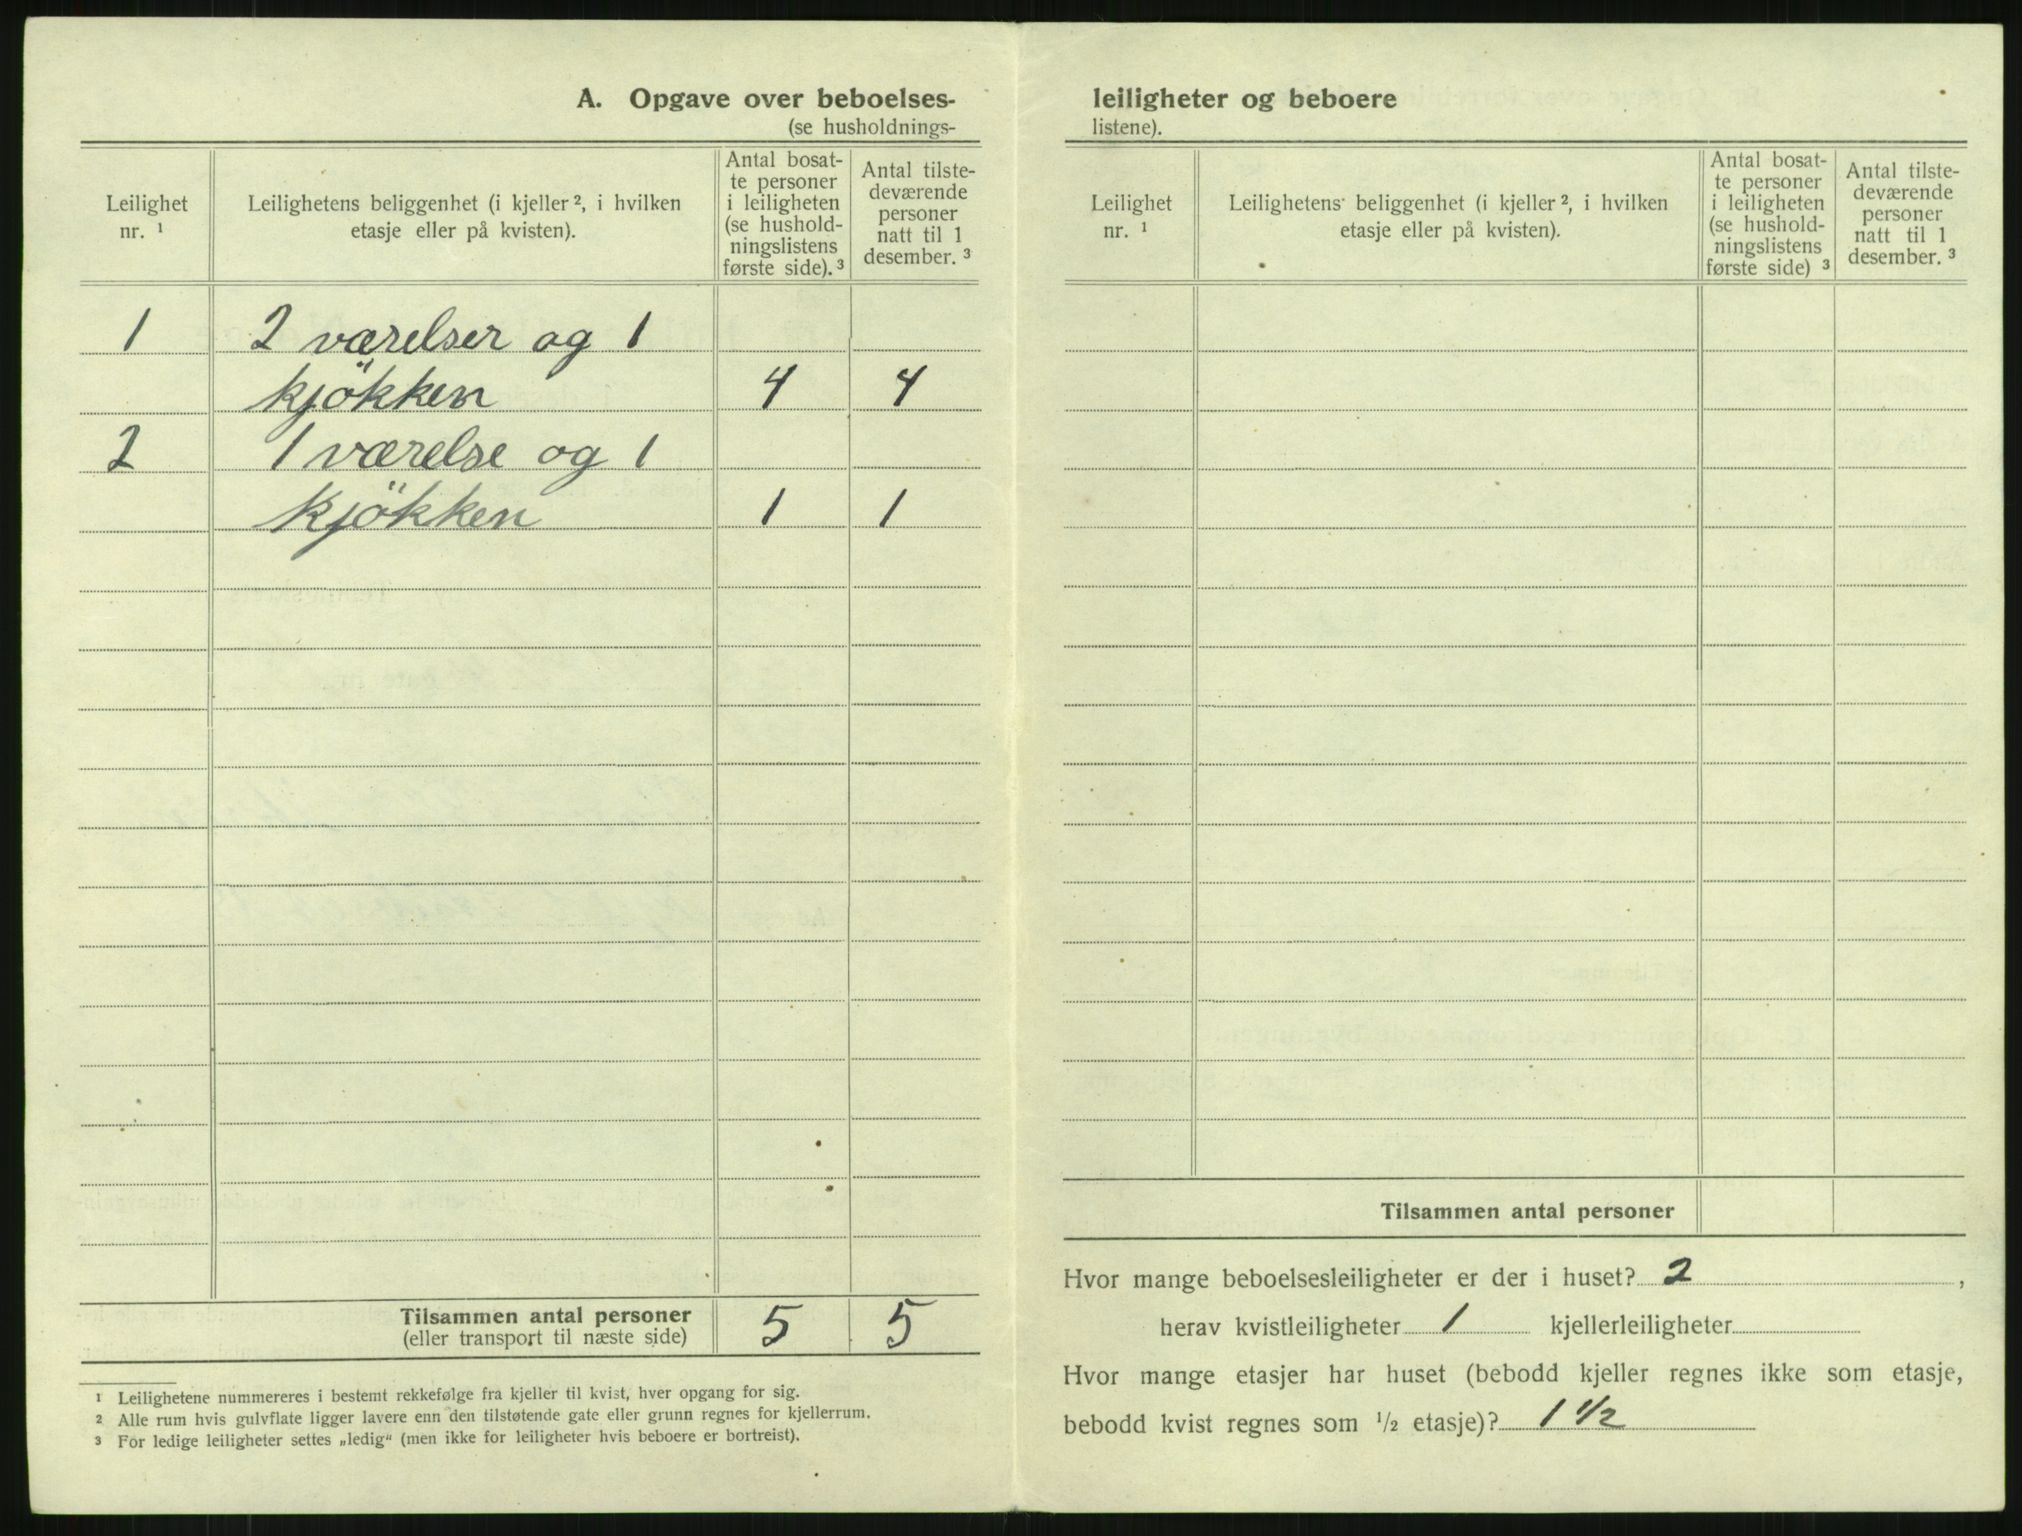 A. Opgave over beboelses-
(se husholdnings-
Leilighet
nr. ¹
Leilighetens beliggenhet (i kjeller ², i hvilken
etasje eller på kvisten).
Antal bosat-
te personer
i leiligheten
(se hushold-
ningslistens
første side). ³
Antal tilste-
deværende
personer
natt til 1
desember. ³
1 2 værelser og 1
kjökken 4 4
2 1 værelse og 1
kjökken 1 1
Tilsammen antal personer
(eller transport til næste side) 5 5
¹ Leilighetene nummereres i bestemt rekkefølge fra kjeller til kvist, hver opgang for sig.
² Alle rum hvis gulvflate ligger lavere enn den tilstøtende gate eller grunn regnes for kjellerrum.
³ For ledige leiligheter settes „ledig“ (men ikke for leiligheter hvis beboere er bortreist).
leiligheter og beboere
listene).
Leilighet
nr. ¹
Leilighetens beliggenhet (i kjeller ², i hvilken
etasje eller på kvisten).
Antal bosat-
te personer
i leiligheten
(se hushold-
ningslistens
første side) ³
Antal tilste-
deværende
personer
natt til 1
desember. ³
Tilsammen antal personer
Hvor mange beboelsesleiligheter er der i huset? 2 ,
herav kvistleiligheter 1 kjellerleiligheter
Hvor mange etasjer har huset (bebodd kjeller regnes ikke som etasje,
bebodd kvist regnes som ½ etasje)? 1 ½